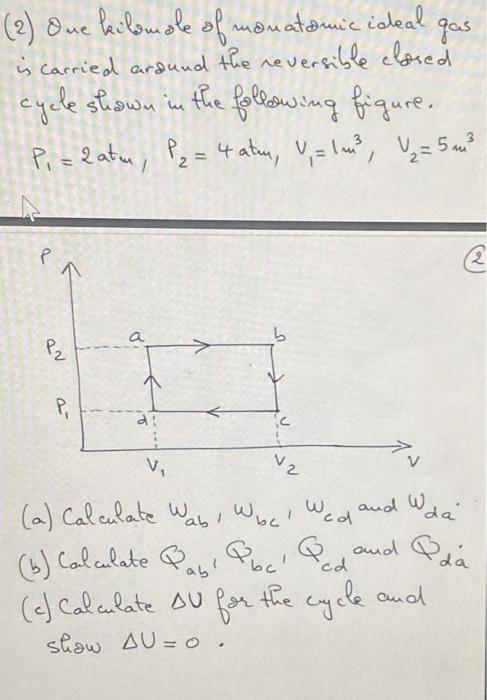 (2) One kilomole of monatomic ideal gas
is carried around the reversible closed
cycle shown in the following figure.
P₁ = 2 atm, P₂ = 4 atm, V₁ = 1 m³, V₂ = 5 m³
2
P
a
b
P₂
P₁
d
c
V₁
V₂
V
(a) Calculate Wab, Wbc, Wcd and Wda.
(b) Calculate Qab, Qbc, Qcd and Qda.
(c) Calculate ΔU for the cycle and
show ΔU = 0 .